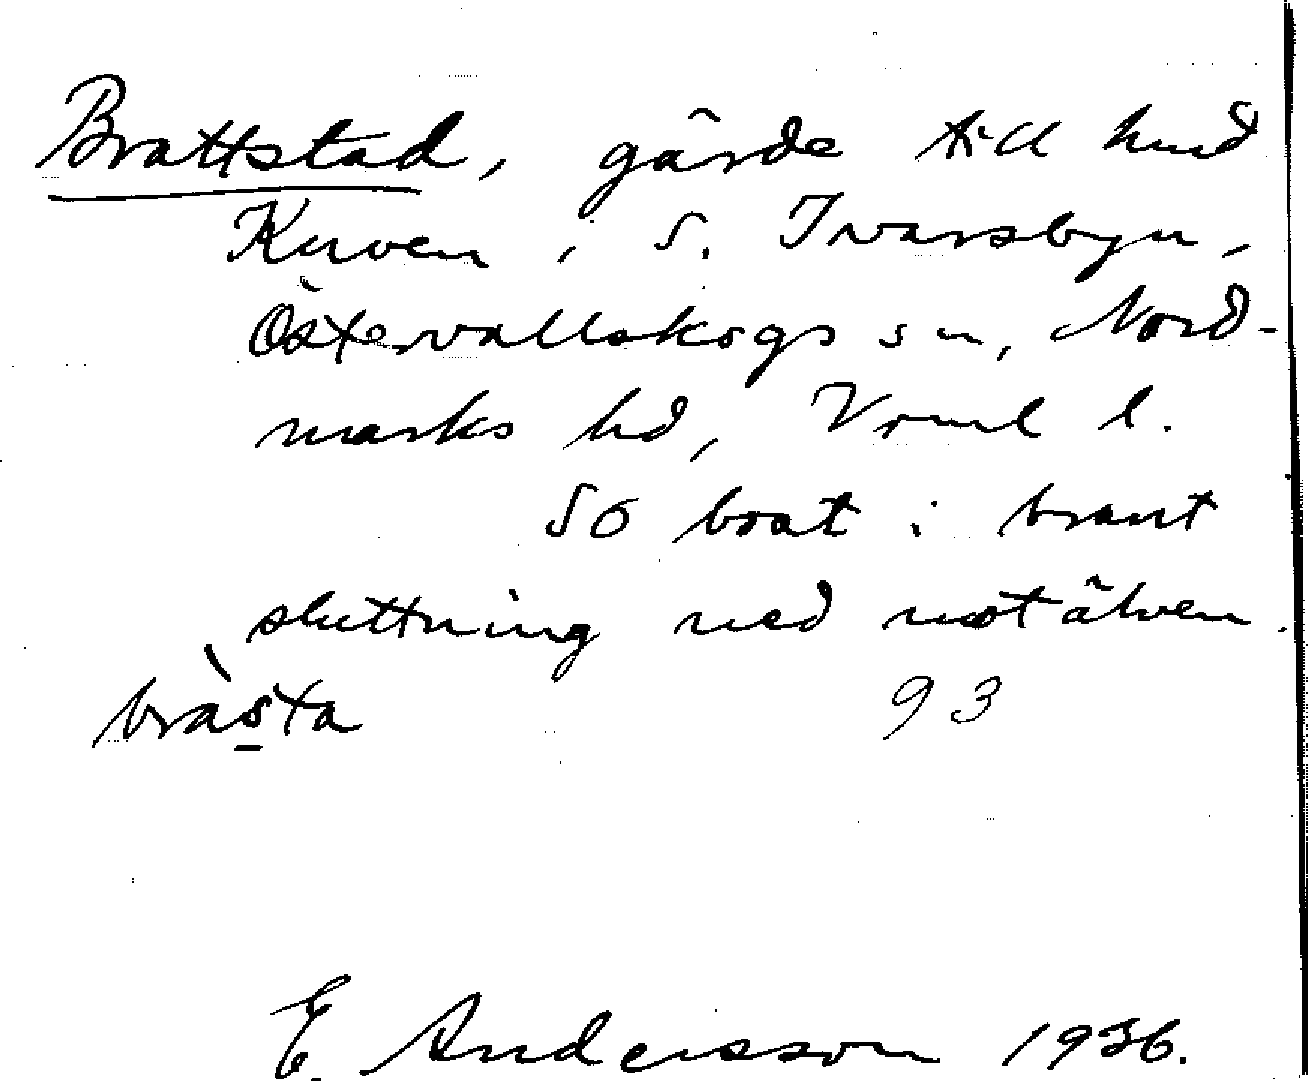 Brattstad, gärde till hmd
Kuven, S. Ivarsbyn,
Östervallskogs sn, Nord-
marks hd, Vrml l.
SO brat i brant
sluttning ned mot älven.
bràsta 93
E. Andersson 1936.